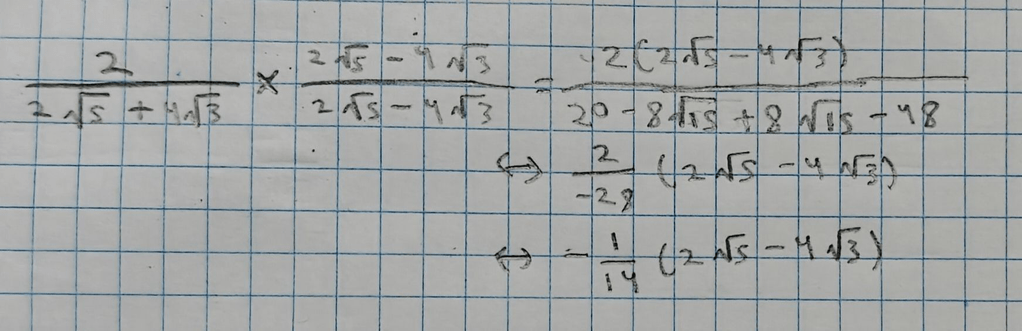 2/(2√5 + 4√3) × (2√5 - 4√3)/(2√5 - 4√3) = 2(2√5 - 4√3)/(20 - 8√15 + 8√15 - 48)
↔ 2/-28 (2√5 - 4√3)
↔ - 1/14 (2√5 - 4√3)